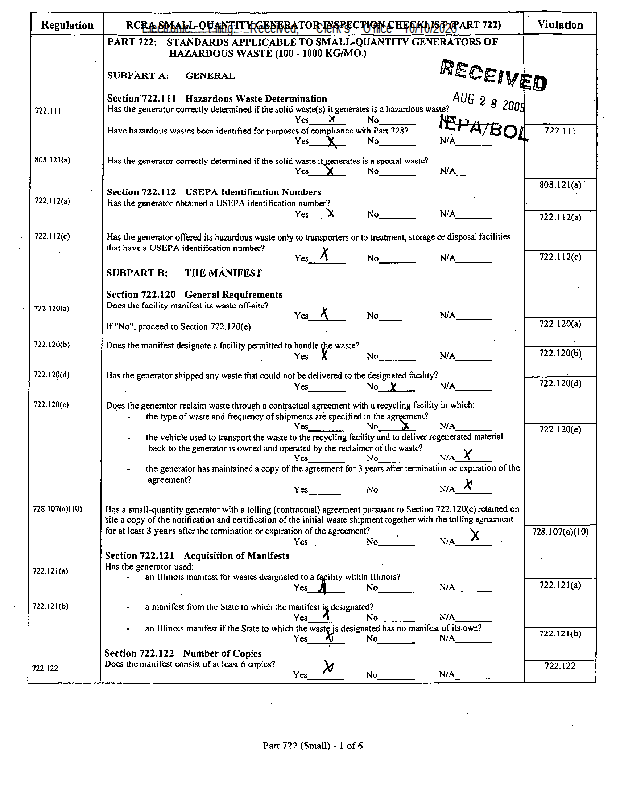 Regulation RCRA SMALL-QUANTITY GENERATOR INSPECTION CHECKLIST (PART 722) Violation
Electronic Filing: Received, Clerk's Office 10/10/2020
PART 722: STANDARDS APPLICABLE TO SMALL-QUANTITY GENERATORS OF
HAZARDOUS WASTE (100 - 1000 KG/MO.)
RECEIVED
SUBPART A: GENERAL
AUG 28 2005
IEPA/BOL
Section 722.111 Hazardous Waste Determination
722.111 Has the generator correctly determined if the solid waste(s) it generates is a hazardous waste?
Yes X No N/A
Have hazardous wastes been identified for purposes of compliance with Part 728? 722.111
Yes X No N/A
808.121(a) Has the generator correctly determined if the solid waste it generates is a special waste?
Yes X No N/A
808.121(a)
Section 722.112 USEPA Identification Numbers
722.112(a) Has the generator obtained a USEPA identification number?
Yes X No N/A 722.112(a)
722.112(c) Has the generator offered its hazardous waste only to transporters or to treatment, storage or disposal facilities
that have a USEPA identification number?
Yes X No N/A 722.112(c)
SUBPART B: THE MANIFEST
Section 722.120 General Requirements
722.120(a) Does the facility manifest its waste off-site?
Yes X No N/A
If "No", proceed to Section 722.120(e) 722.120(a)
722.120(b) Does the manifest designate a facility permitted to handle the waste?
Yes X No N/A 722.120(b)
722.120(d) Has the generator shipped any waste that could not be delivered to the designated facility?
Yes No X N/A 722.120(d)
722.120(e) Does the generator reclaim waste through a contractual agreement with a recycling facility in which:
- the type of waste and frequency of shipments are specified in the agreement?
Yes No X N/A 722.120(e)
- the vehicle used to transport the waste to the recycling facility and to deliver regenerated material
back to the generator is owned and operated by the reclaimer of the waste?
Yes No N/A X
- the generator has maintained a copy of the agreement for 3 years after termination or expiration of the
agreement?
Yes No N/A X
728.107(a)(10) Has a small-quantity generator with a tolling (contractual) agreement pursuant to Section 722.120(e) retained on
site a copy of the notification and certification of the initial waste shipment together with the tolling agreement
for at least 3 years after the termination or expiration of the agreement?
Yes No N/A X 728.107(a)(10)
Section 722.121 Acquisition of Manifests
722.121(a) Has the generator used:
- an Illinois manifest for wastes designated to a facility within Illinois?
Yes X No N/A 722.121(a)
722.121(b) - a manifest from the State to which the manifest is designated?
Yes X No N/A
- an Illinois manifest if the State to which the waste is designated has no manifest of its own?
Yes X No N/A 722.121(b)
Section 722.122 Number of Copies
722.122 Does the manifest consist of at least 6 copies? 722.122
Yes X No N/A
Part 722 (Small) - 1 of 6